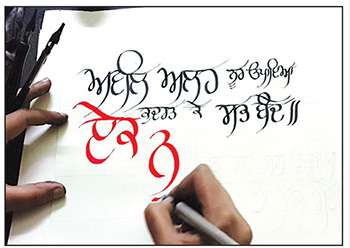 ਅਵਲਿ ਅਲਹ ਨੂਰ ਉਪਾਇਆ
ਕੁਦਰਤ ਕੇ ਸਭ ਬੰਦੇ॥
ਏਕ ਨੁ